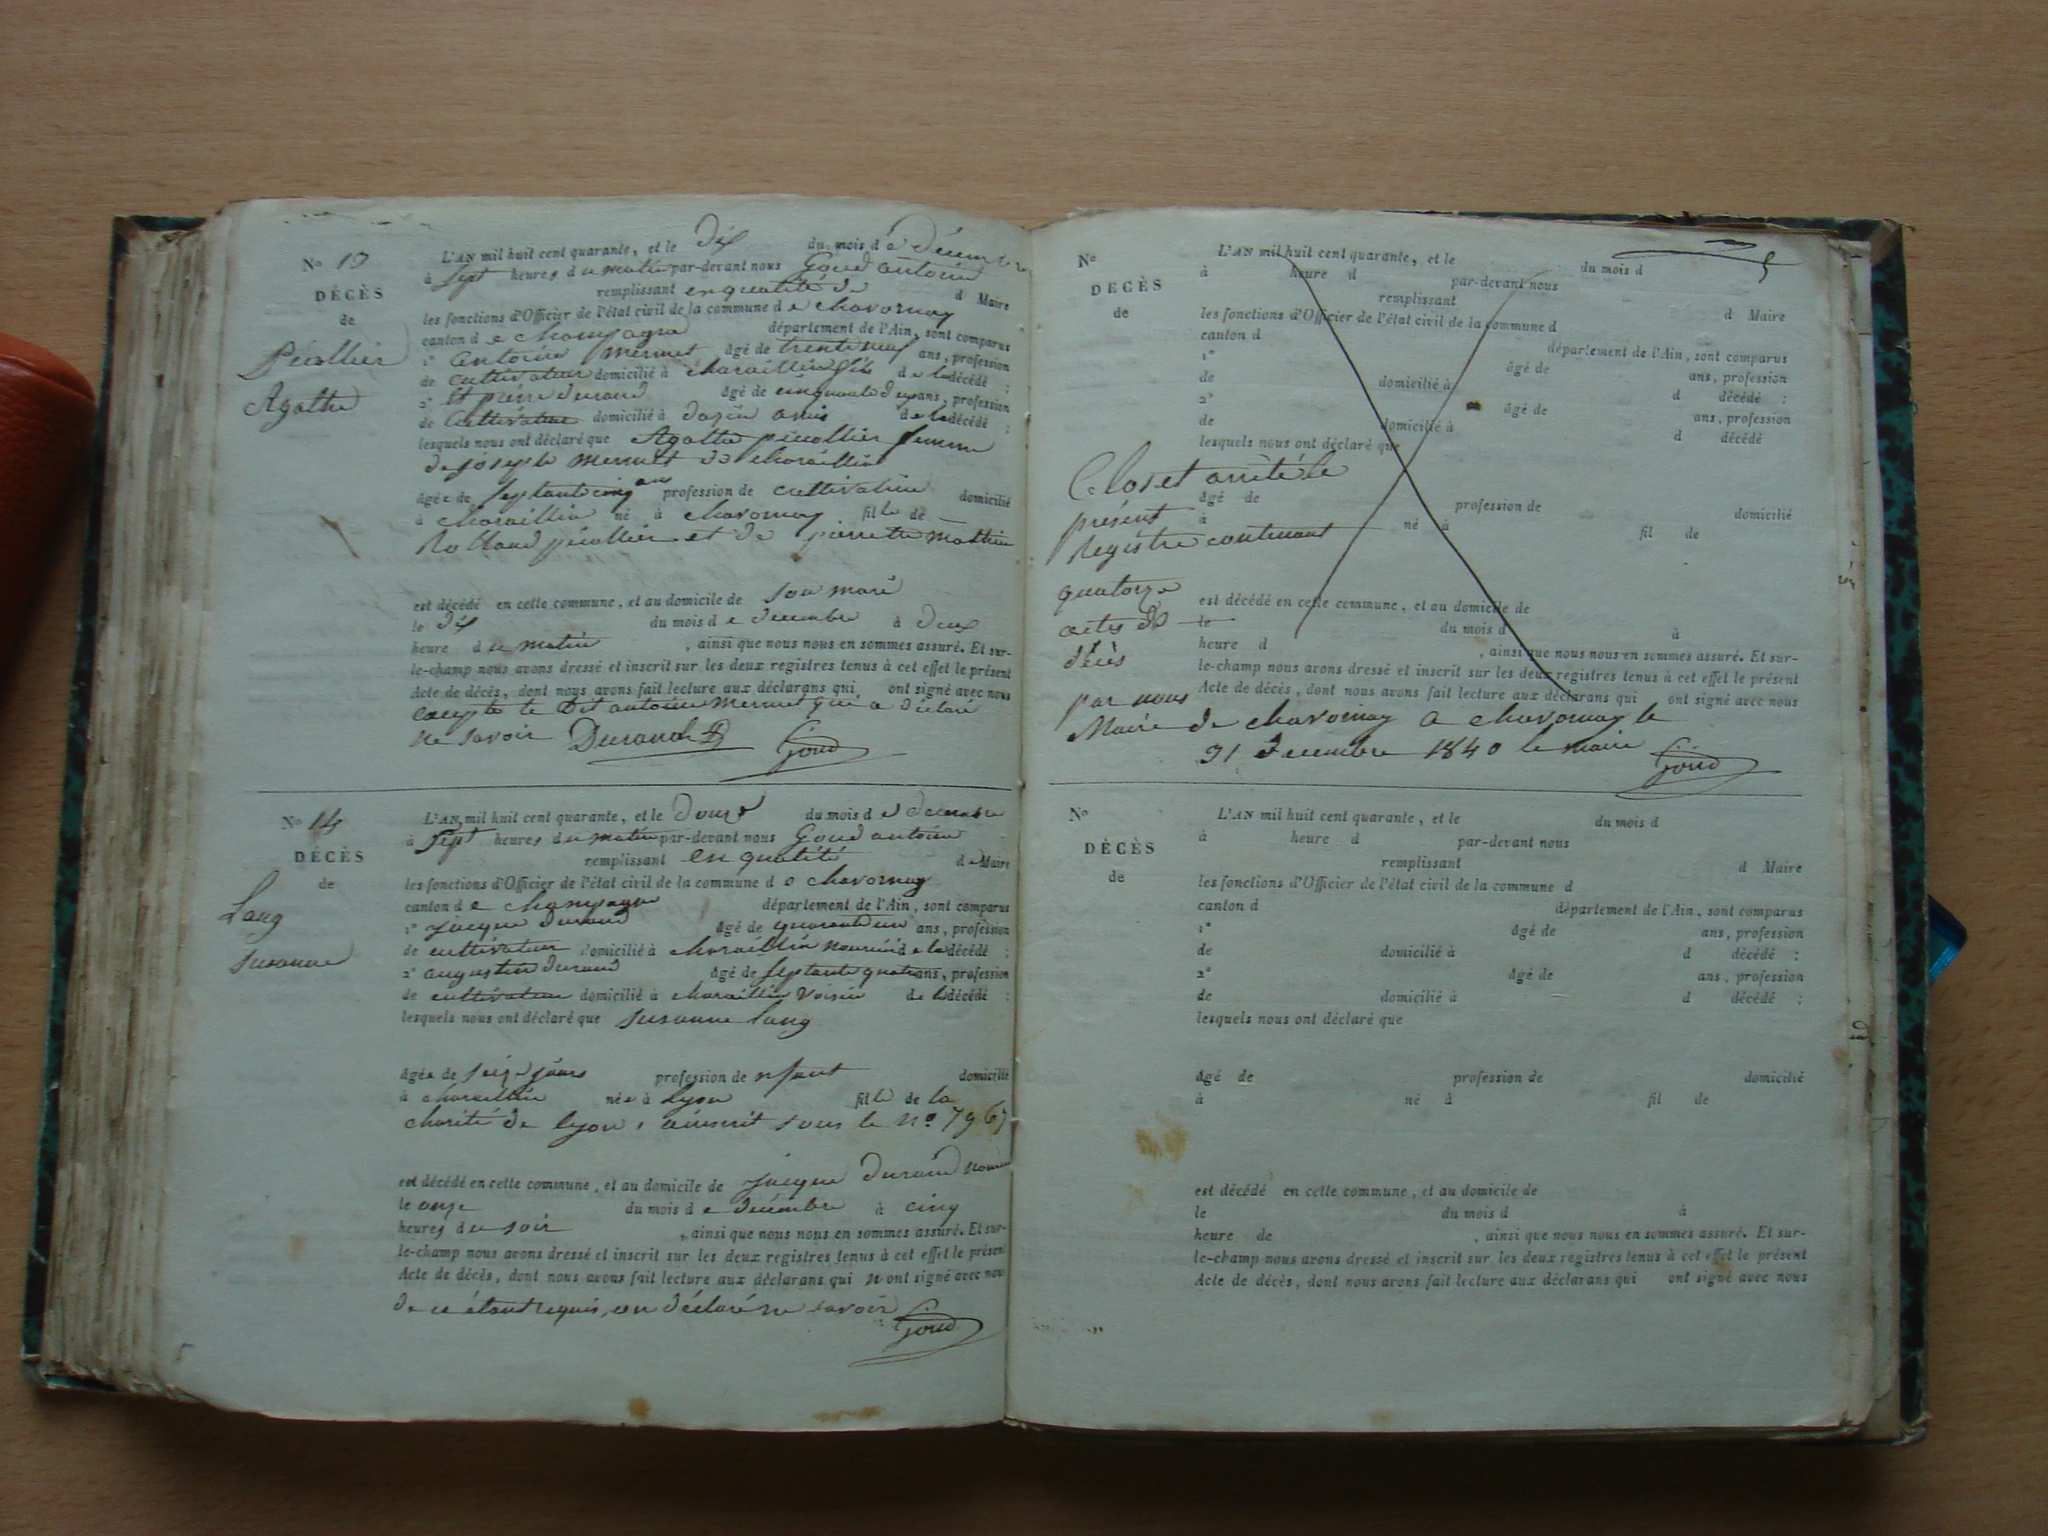 N° 13
DÉCÈS
de
Pécollier
Agathe
L'AN mil huit cent quarante, et le dix du mois de décembre
à sept heures du matin par-devant nous Goud antoine
remplissant en qualité de d Maire
les fonctions d'Officier de l'état civil de la commune de chavornay
canton de champagne département de l'Ain, sont comparus
1° antoine mermet âgé de trente neuf ans, profession
de cultivateur domicilié à charaillin fils de la décédé :
2° Et pierre durand âgé de cinquante deux ans, profession
de Cultivateur domicilié à dazin amis de la décédé :
lesquels nous ont déclaré que Agathe pécollier femme
de joseph mermet de charaillin
âgée de septante cinq ans profession de cultivatrice domicilié
à charaillin né à chavornay fille de
Rolland pécollier et de pierrette mathieu
est décédé en cette commune, et au domicile de son mari
le dix du mois de decembre à deux
heure du matin , ainsi que nous nous en sommes assuré. Et sur-
le-champ nous avons dressé et inscrit sur les deux registres tenus à cet effet le présent
Acte de décès, dont nous avons fait lecture aux déclarans qui ont signé avec nous
excepté le dit antoine mermet qui a déclaré
ne savoir Durand Goud
N° 14
DÉCÈS
de
Lang
susanne
L'AN mil huit cent quarante, et le douze du mois de decembre
à sept heures du matin par-devant nous Goud antoine
remplissant en qualité de Maire
les fonctions d'Officier de l'état civil de la commune de chavornay
canton de champagne département de l'Ain, sont comparus
1° jacque durand âgé de quarante un ans, profession
de cultivateur domicilié à charaillin de la décédé :
2° augustin durand âgé de septante quatre ans, profession
de cultivateur domicilié à charaillin voisin de la décédé :
lesquels nous ont déclaré que susanne lang
âgée de seize jours profession de nfant domicilié
à charaillin née à lyon fille de la
charité de lyon, ainscrit sous le n° 7967
est décédé en cette commune, et au domicile de jacque durand
le onze du mois de décembre à cinq
heures du soir , ainsi que nous nous en sommes assuré. Et sur-
le-champ nous avons dressé et inscrit sur les deux registres tenus à cet effet le présent
Acte de décès, dont nous avons fait lecture aux déclarans qui n ont signé avec nous
de ce étant requis, on déclaré ne savoir Goud
N°
DECÈS
de
L'AN mil huit cent quarante, et le du mois d
à heure d par-devant nous
remplissant d Maire
les fonctions d'Officier de l'état civil de la commune d
canton d département de l'Ain, sont comparus
1° âgé de ans, profession
de domicilié à d décédé :
2° âgé de ans, profession
de domicilié à d décédé
lesquels nous ont déclaré que
Clos et arrêté le
âgé de profession de domicilié
présent
à né à fil de
Registre contenant
quatorze
est décédé en cette commune, et au domicile de
actes de
le du mois d à
heure d , ainsi que nous nous en sommes assuré. Et sur-
décès
le-champ nous avons dressé et inscrit sur les deux registres tenus à cet effet le présent
Acte de décès, dont nous avons fait lecture aux déclarans qui ont signé avec nous
par nous
Maire de chavornay a chavornay le
31 decembre 1840 le maire Goud
N°
DÉCÈS
de
L'AN mil huit cent quarante, et le du mois d
à heure d par-devant nous
remplissant d Maire
les fonctions d'Officier de l'état civil de la commune d
canton d département de l'Ain, sont comparus
1° âgé de ans, profession
de domicilié à d décédé :
2° âgé de ans, profession
de domicilié à d décédé :
lesquels nous ont déclaré que
âgé de profession de domicilié
à né à fil de
est décédé en cette commune, et au domicile de
le du mois d à
heure de , ainsi que nous nous en sommes assuré. Et sur-
le-champ nous avons dressé et inscrit sur les deux registres tenus à cet effet le présent
Acte de décès, dont nous avons fait lecture aux déclarans qui ont signé avec nous